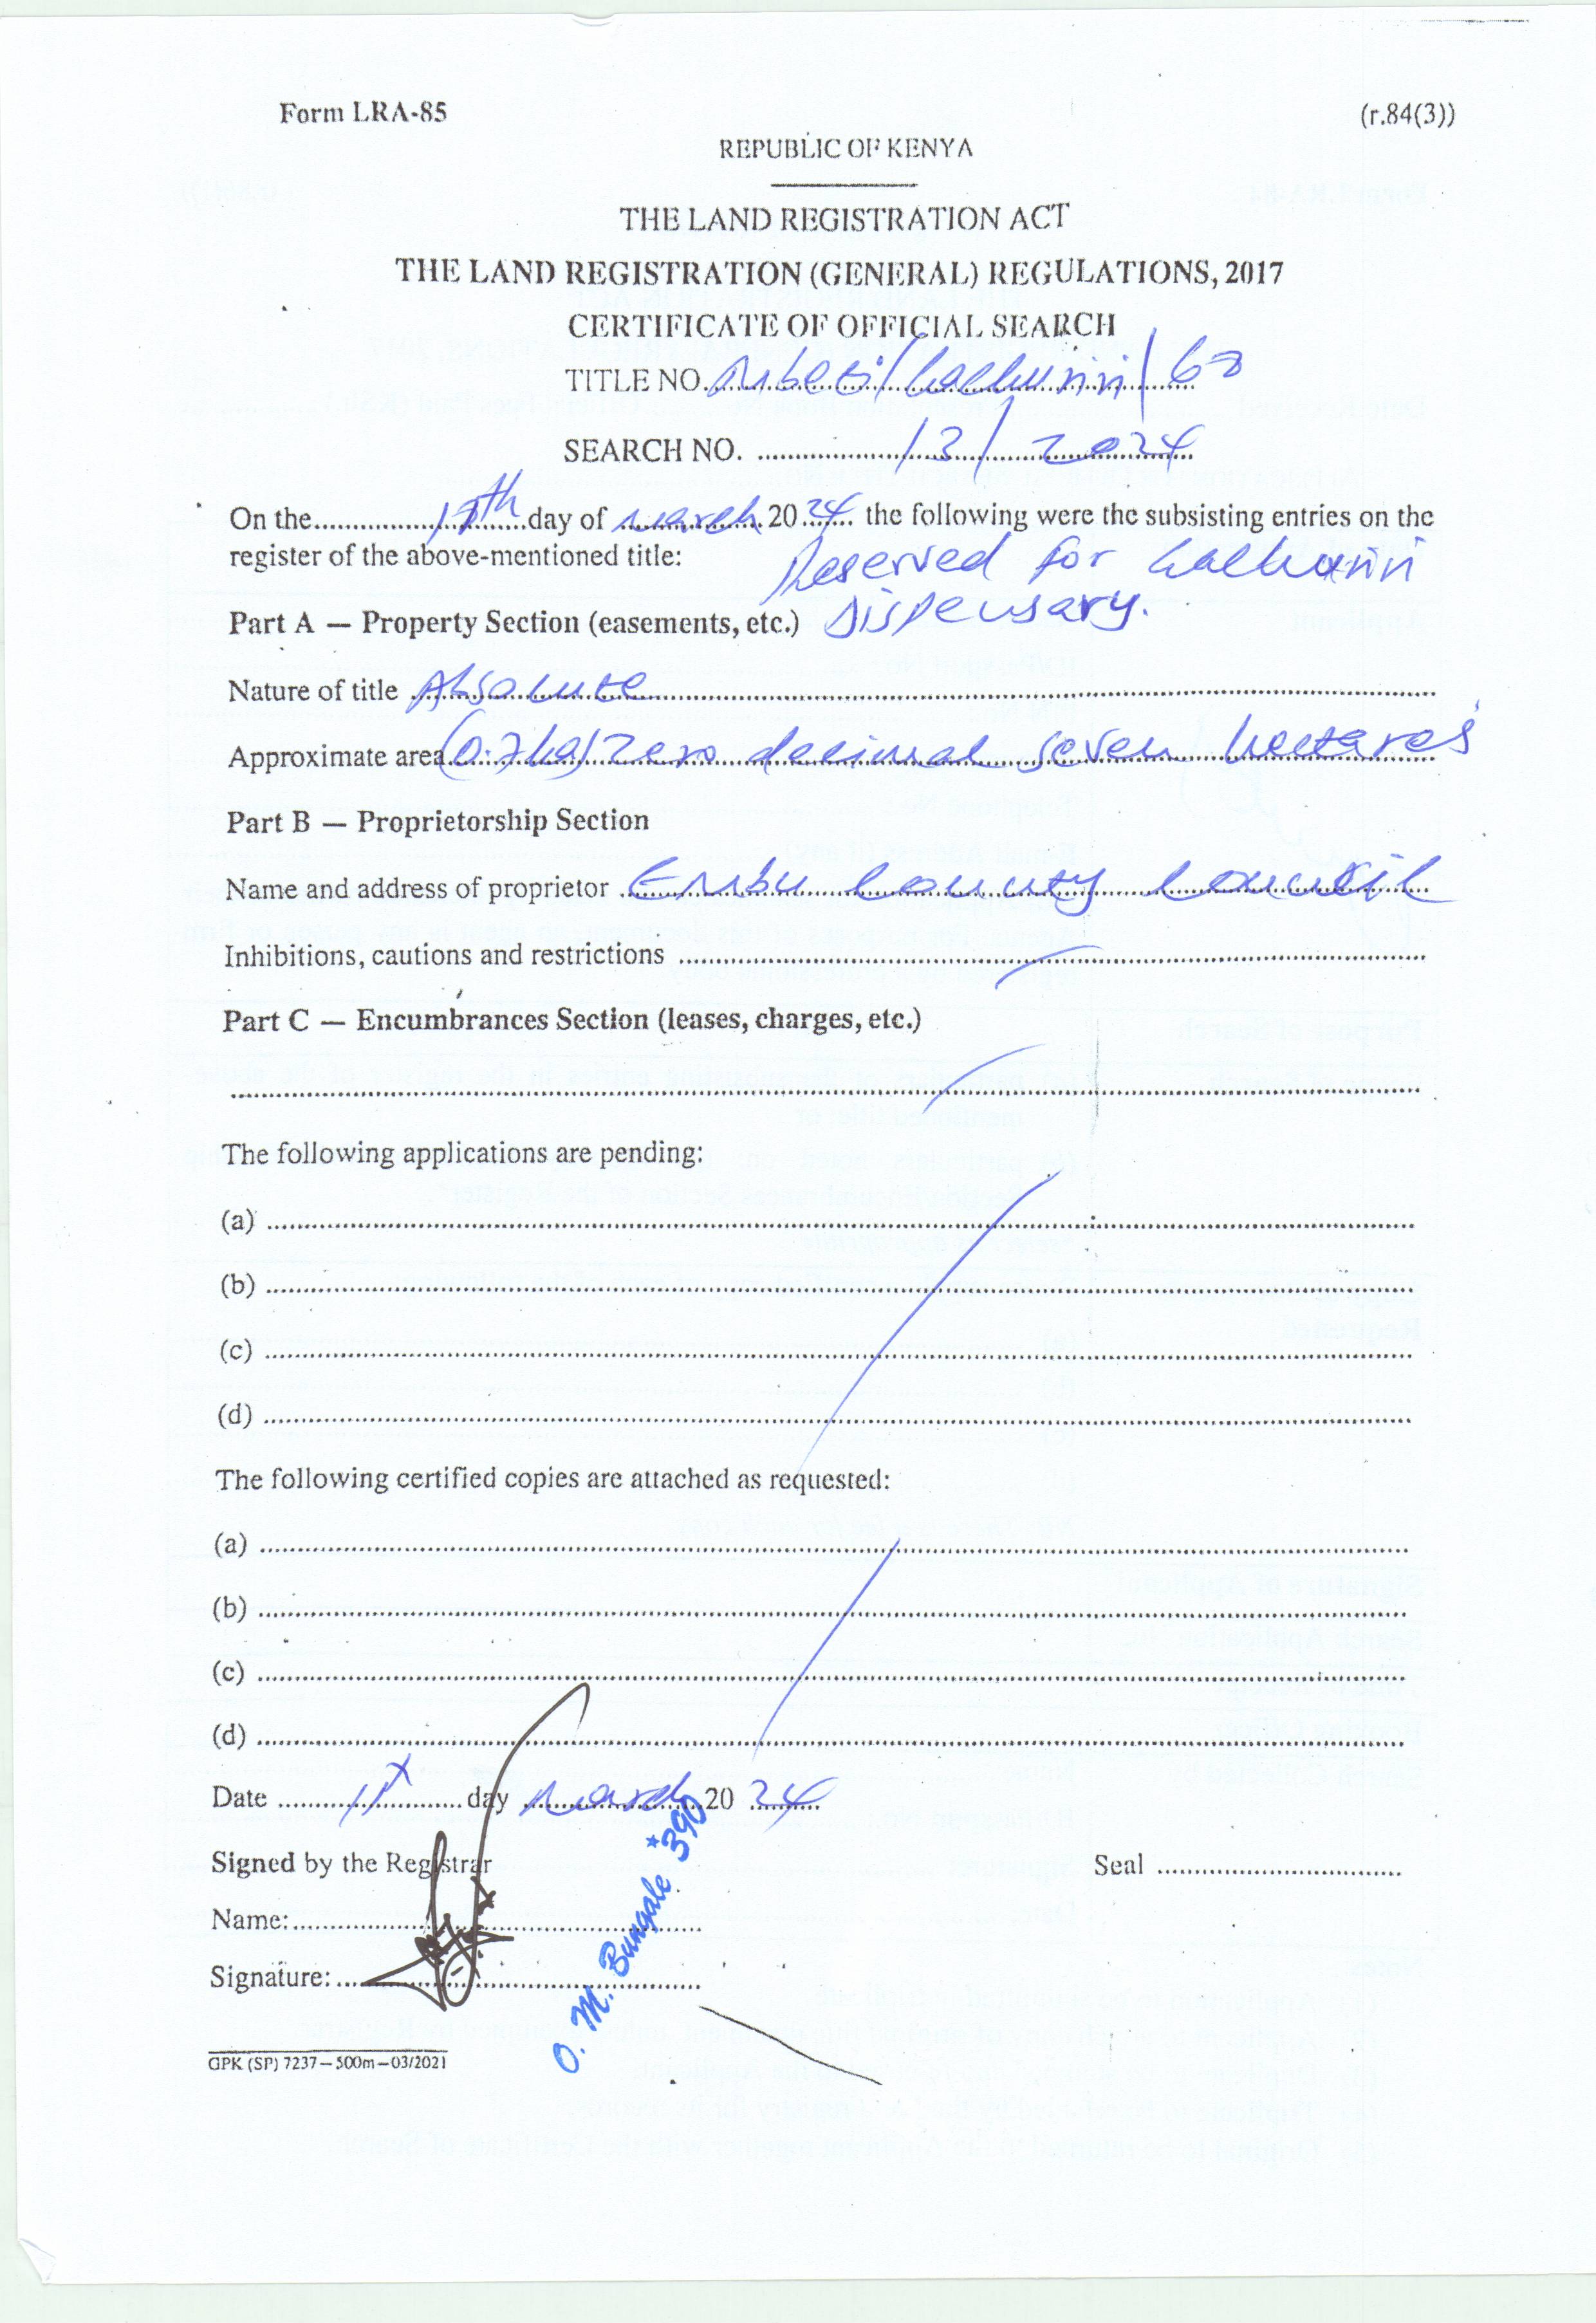 Form LRA-85
(r.84(3))
REPUBLIC OF KENYA
THE LAND REGISTRATION ACT
THE LAND REGISTRATION (GENERAL) REGULATIONS, 2017
CERTIFICATE OF OFFICIAL SEARCH
TITLE NO. Mbeti/Gachuriri/60
SEARCH NO. 13/2024
On the day of March 2024 the following were the subsisting entries on the
register of the above-mentioned title:
Reserved for Gachuriri
Part A — Property Section (easements, etc.) Dispensary.
Nature of title Absolute
Approximate area (0.7ha) Zero decimal seven hectares
Part B — Proprietorship Section
Name and address of proprietor Embu County Council
Inhibitions, cautions and restrictions
Part C — Encumbrances Section (leases, charges, etc.)
The following applications are pending:
(a)
(b)
(c)
(d)
The following certified copies are attached as requested:
(a)
(b)
(c)
(d)
Date 11th day March 2024
Signed by the Registrar
Seal
Name:
Signature:
O. M. Bungale *390
GPK (SP) 7237—500m—03/2021